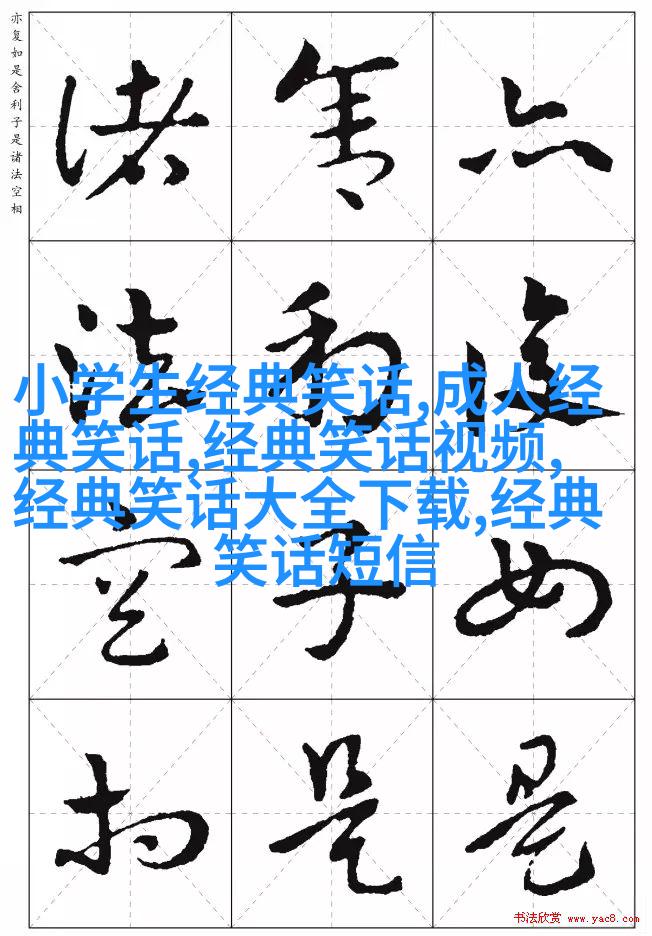 亦复如是舍利子是诸法空相
亦复如是
舍利子是
诸法空相
小学生经典笑话,成人经
典笑话,经典笑话视频,
经典笑话大全下载,经典
笑话短信
书法欣赏 www.yac8.com